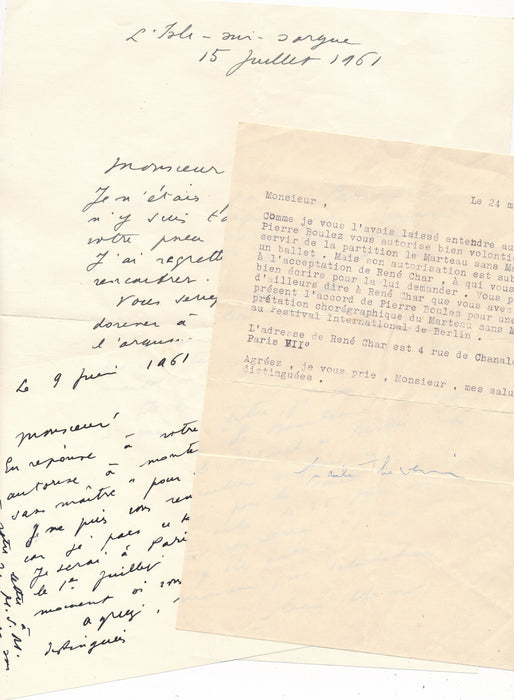 L'Isle-sur-Sorgue
15 Juillet 1961
Monsieur
Je n'étais p
n'y suis
votre pneu
J'ai regrett
rencontrer.
Vous
à
Le 9 Juin 1961
Monsieur,
En réponse à votre
autorise à monte
sans maître" pour
Je ne puis vous ren
car je pars
Je serai à Paris
le 1er Juillet
moment où vous
agréez,
distingués
Monsieur ,
Le 24 m
Comme je vous l'avais laissé entendre au
Pierre Boulez vous autorise bien volontie
servir de la partition le Marteau sans Ma
un ballet . Mais son autorisation est sub
à l'acceptation de René Char , à qui vous
bien écrire pour la lui demander . Vous p
d'ailleurs dire à René Char que vous avez
présent l'accord de Pierre Boulez pour une
prétation chorégraphique du Marteau sans M
au Festival International de Berlin .
L'adresse de René Char est 4 rue de Chanale
Paris VII°
Agréez , je vous prie , Monsieur , mes salu
distinguées .